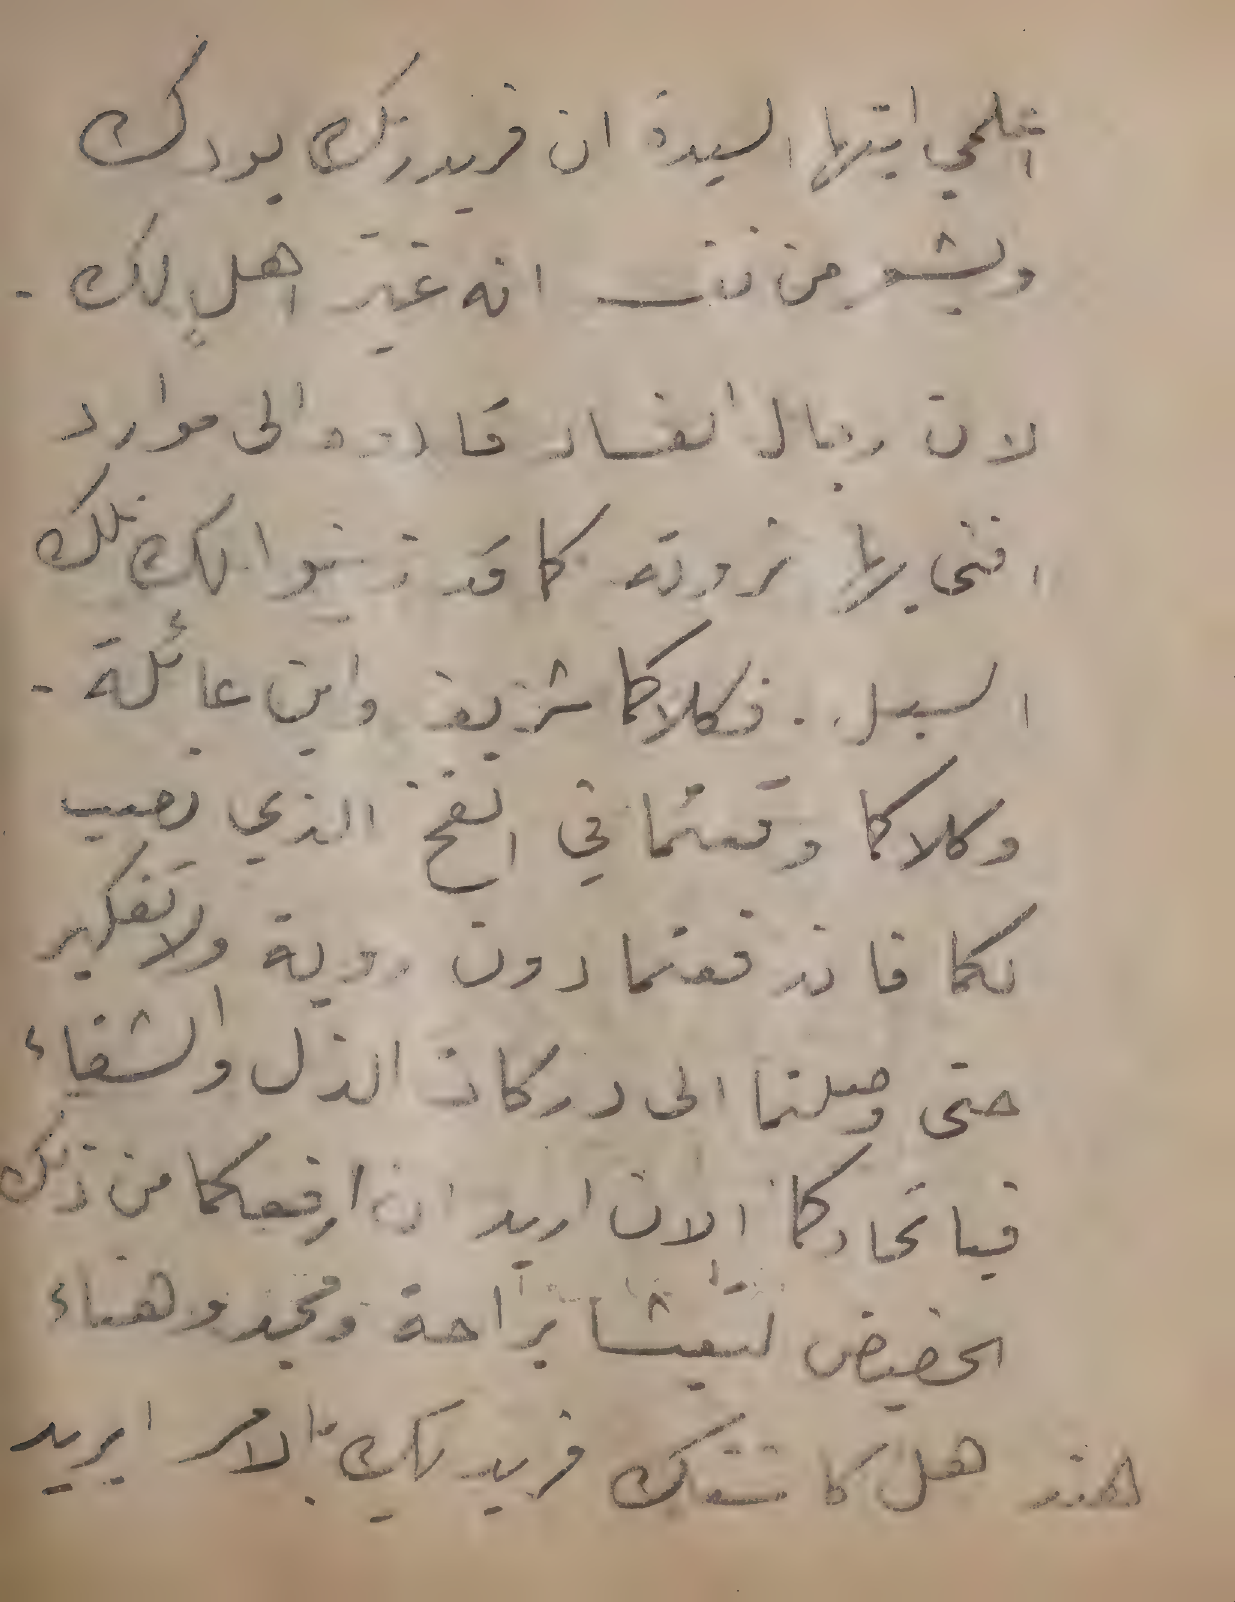 اعلمي ايتها السيدة ان فريد بك يودك
ويشعر من نفسه انه غير اهلٍ لك -
لان رجال الفساد قادوه الى موارد
افنى بها ثروته كما قد زينوا لك تلك
السبل . فكلاكما شريف وابن عائلة -
وكلاكما وقعتما في الفخ الذي نصب
لكما فاندفعتما دون روية ولا تفكير
حتى وصلتما الى دركات الذل والشقاء
فباتحادكما الان اريد ان ارفعكما من ذلك
الحضيض لتعيشا براحة ومجد وهناء
هند هل كاشفك فريد بك بالامر ايريد